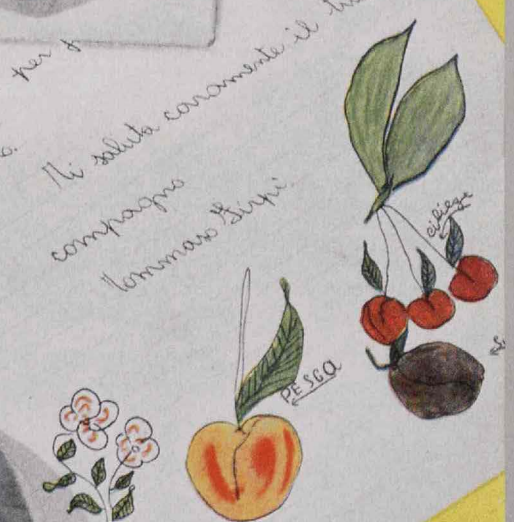 per
Ti saluta caramente il
compagno
Tommaso
ciliege
PESGA